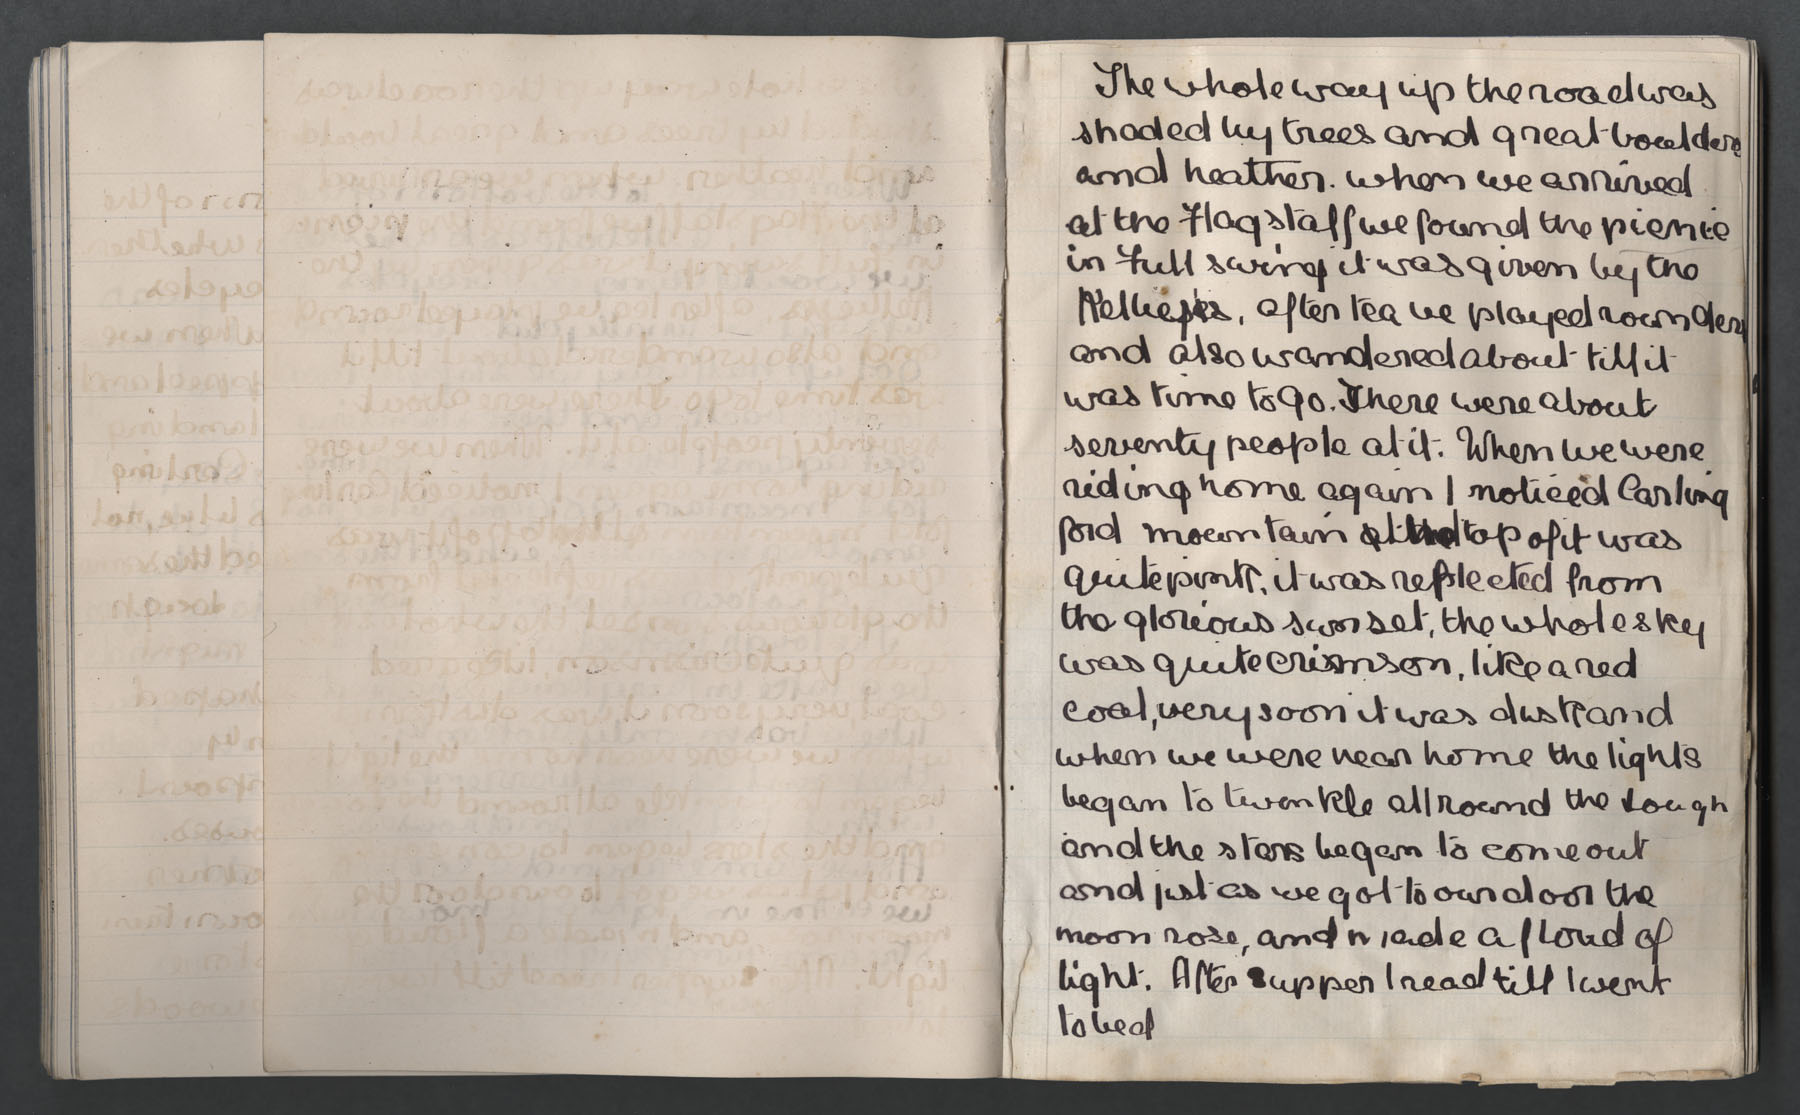 The whole way up the road was
shaded by trees and great boulders
and heather. when we arrived
at the Flagstaff we found the picnic
in Full swing it was given by the
after tea we played rounders
and also wandered about till it
was time to go. There were about
seventy people at it. When we were
riding home again I noticed Carling
ford mountain at the top of it was
quite pink, it was reflected from
the glorious sunset, the whole sky
was quite crimson, like a red
coal, very soon it was dusk and
when we were near home the lights
began to twinkle all round the Lough
and the stars began to come out
and just as we got to our door the
moon rose, and made a flood of
light. After supper I read till I went
to bed